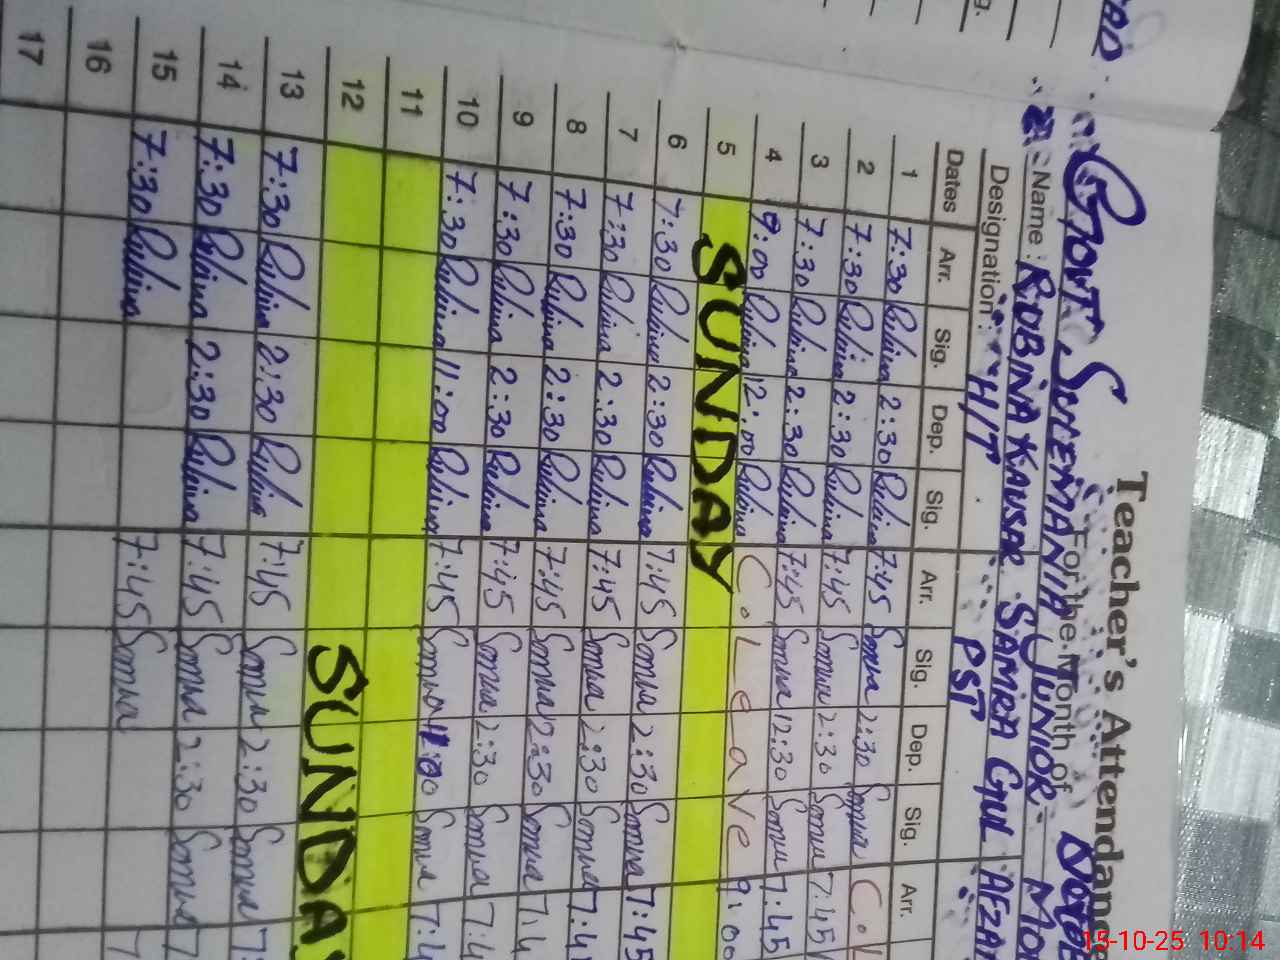 Teacher's Attendance
For the Month of
Govt Sulemania Junior Mo
Name : ROBINA KAUSER SAMRA GUL AFZA
Designation : H/T PST
Dates Arr. Sig. Dep. Sig. Arr. Sig. Dep. Sig. Arr.
1 7:30 Rubina 2:30 Rubina 7:45 Samra 2:30 Samra C.L
2 7:30 Rubina 2:30 Rubina 7:45 Samra 2:30 Samra 7:45
3 7:30 Rubina 2:30 Rubina 7:45 Samra 12:30 Samra 7:45
4 9:00 Rubina 12:00 Rubina C. Leave 9:00
5 SUNDAY
6 7:30 Rubina 2:30 Rubina 7:45 Samra 2:30 Samra 7:45
7 7:30 Rubina 2:30 Rubina 7:45 Samra 2:30 Samra 7:4
8 7:30 Rubina 2:30 Rubina 7:45 Samra 2:30 Samra 7:4
9 7:30 Rubina 2:30 Rubina 7:45 Samra 2:30 Samra 7:4
10 7:30 Rubina 11:00 Rubina 7:45 Samra 11:00 Samra 7:4
11
12 SUNDAY
13 7:30 Rubina 2:30 Rubina 7:45 Samra 2:30 Samra 7:
14 7:30 Rubina 2:30 Rubina 7:45 Samra 2:30 Samra 7
15 7:30 Rubina 7:45 Samra 7
16
17
15-10-25 10:14